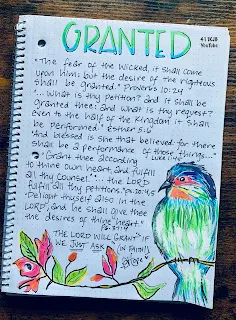 GRANTED
YouTube
"The fear of the wicked, it shall come
upon him; but the desire of the righteous
shall be granted." Proverbs 10:24
"...What is thy petition? and it shall be
granted thee: and what is thy request?
even to the half of the kingdom it shall
be performed." Esther 5:6
"And blessed is she that believed: for there
shall be a performance of those things..."
Luke 1:45
"Grant thee according
to thine own heart, and fulfill
all thy counsel." "...the LORD
fulfill all thy petitions."
"Delight thyself also in the
LORD; and he shall give thee
the desires of thine heart."
Ps. 37:4
THE LORD WILL GRANT IF
WE JUST ASK (IN FAITH!)